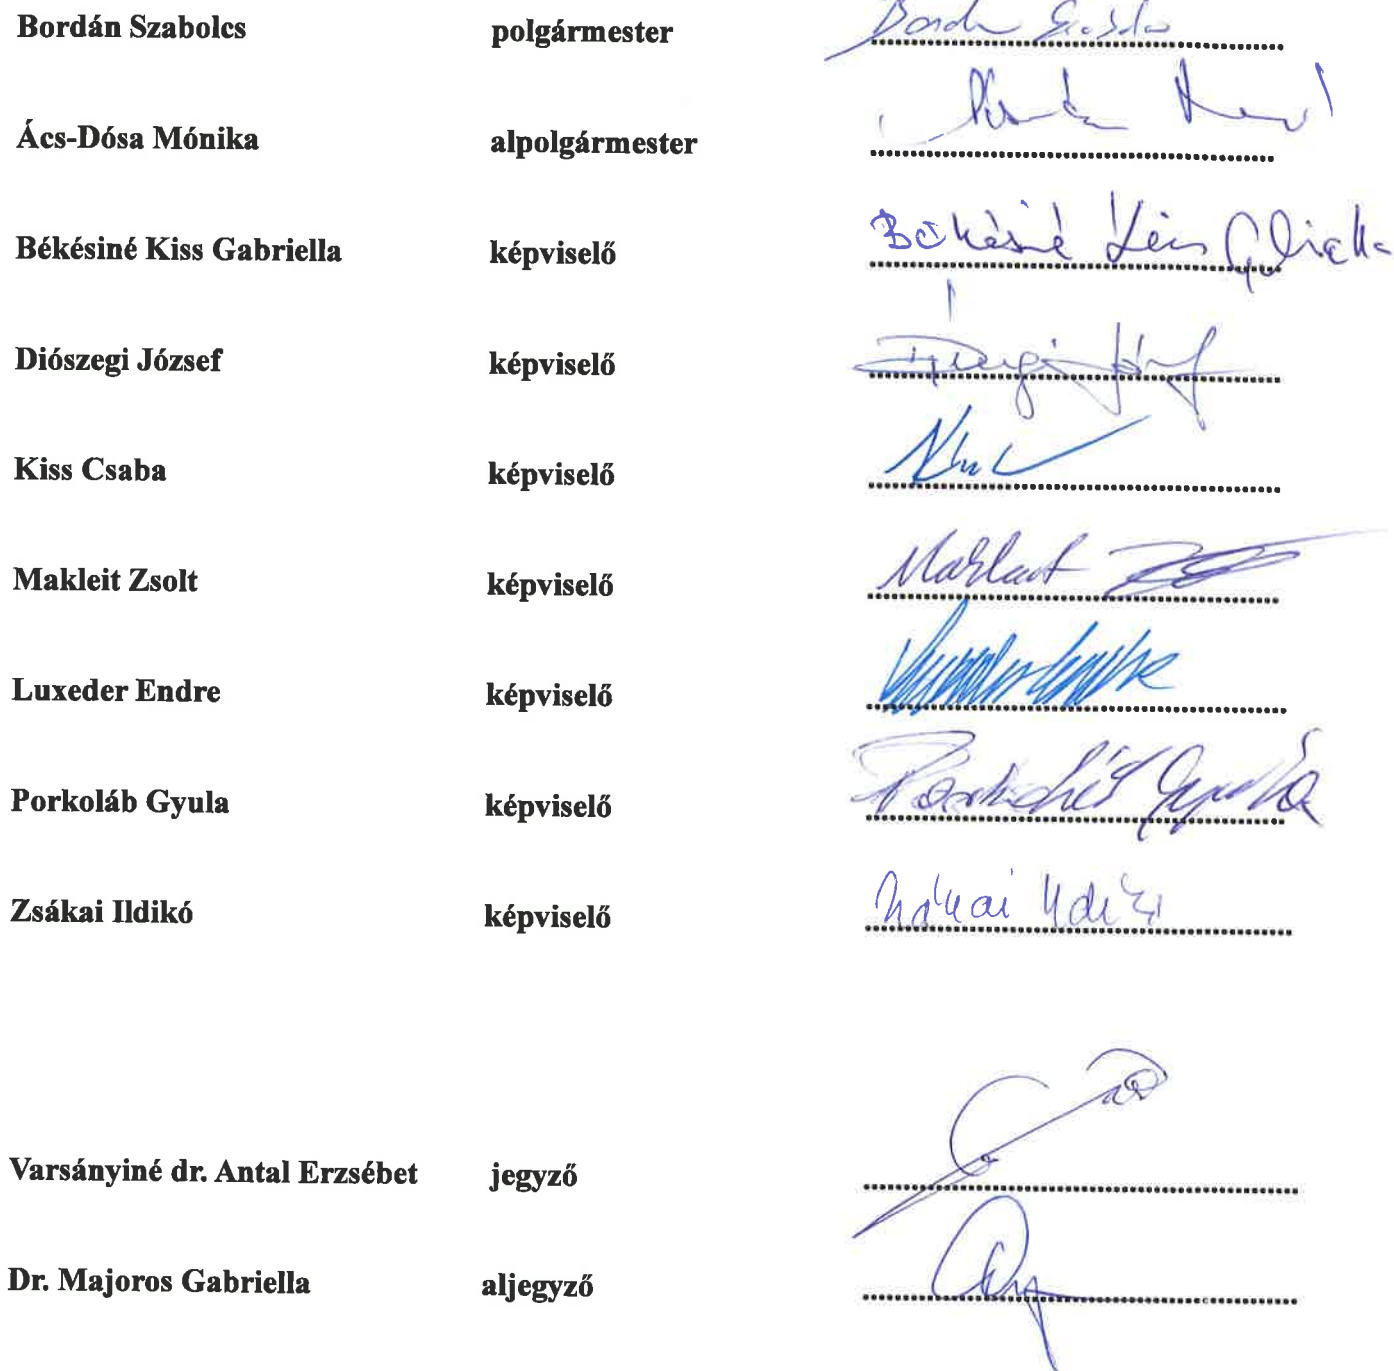 Bordán Szabolcs polgármester
Ács-Dósa Mónika alpolgármester
Békésiné Kiss Gabriella képviselő Békésiné Kiss Gabriella
Diószegi József képviselő
Kiss Csaba képviselő
Makleit Zsolt képviselő Makleit
Luxeder Endre képviselő
Porkoláb Gyula képviselő Porkoláb Gyula
Zsákai Ildikó képviselő Zsákai Ildikó
Varsányiné dr. Antal Erzsébet jegyző
Dr. Majoros Gabriella aljegyző